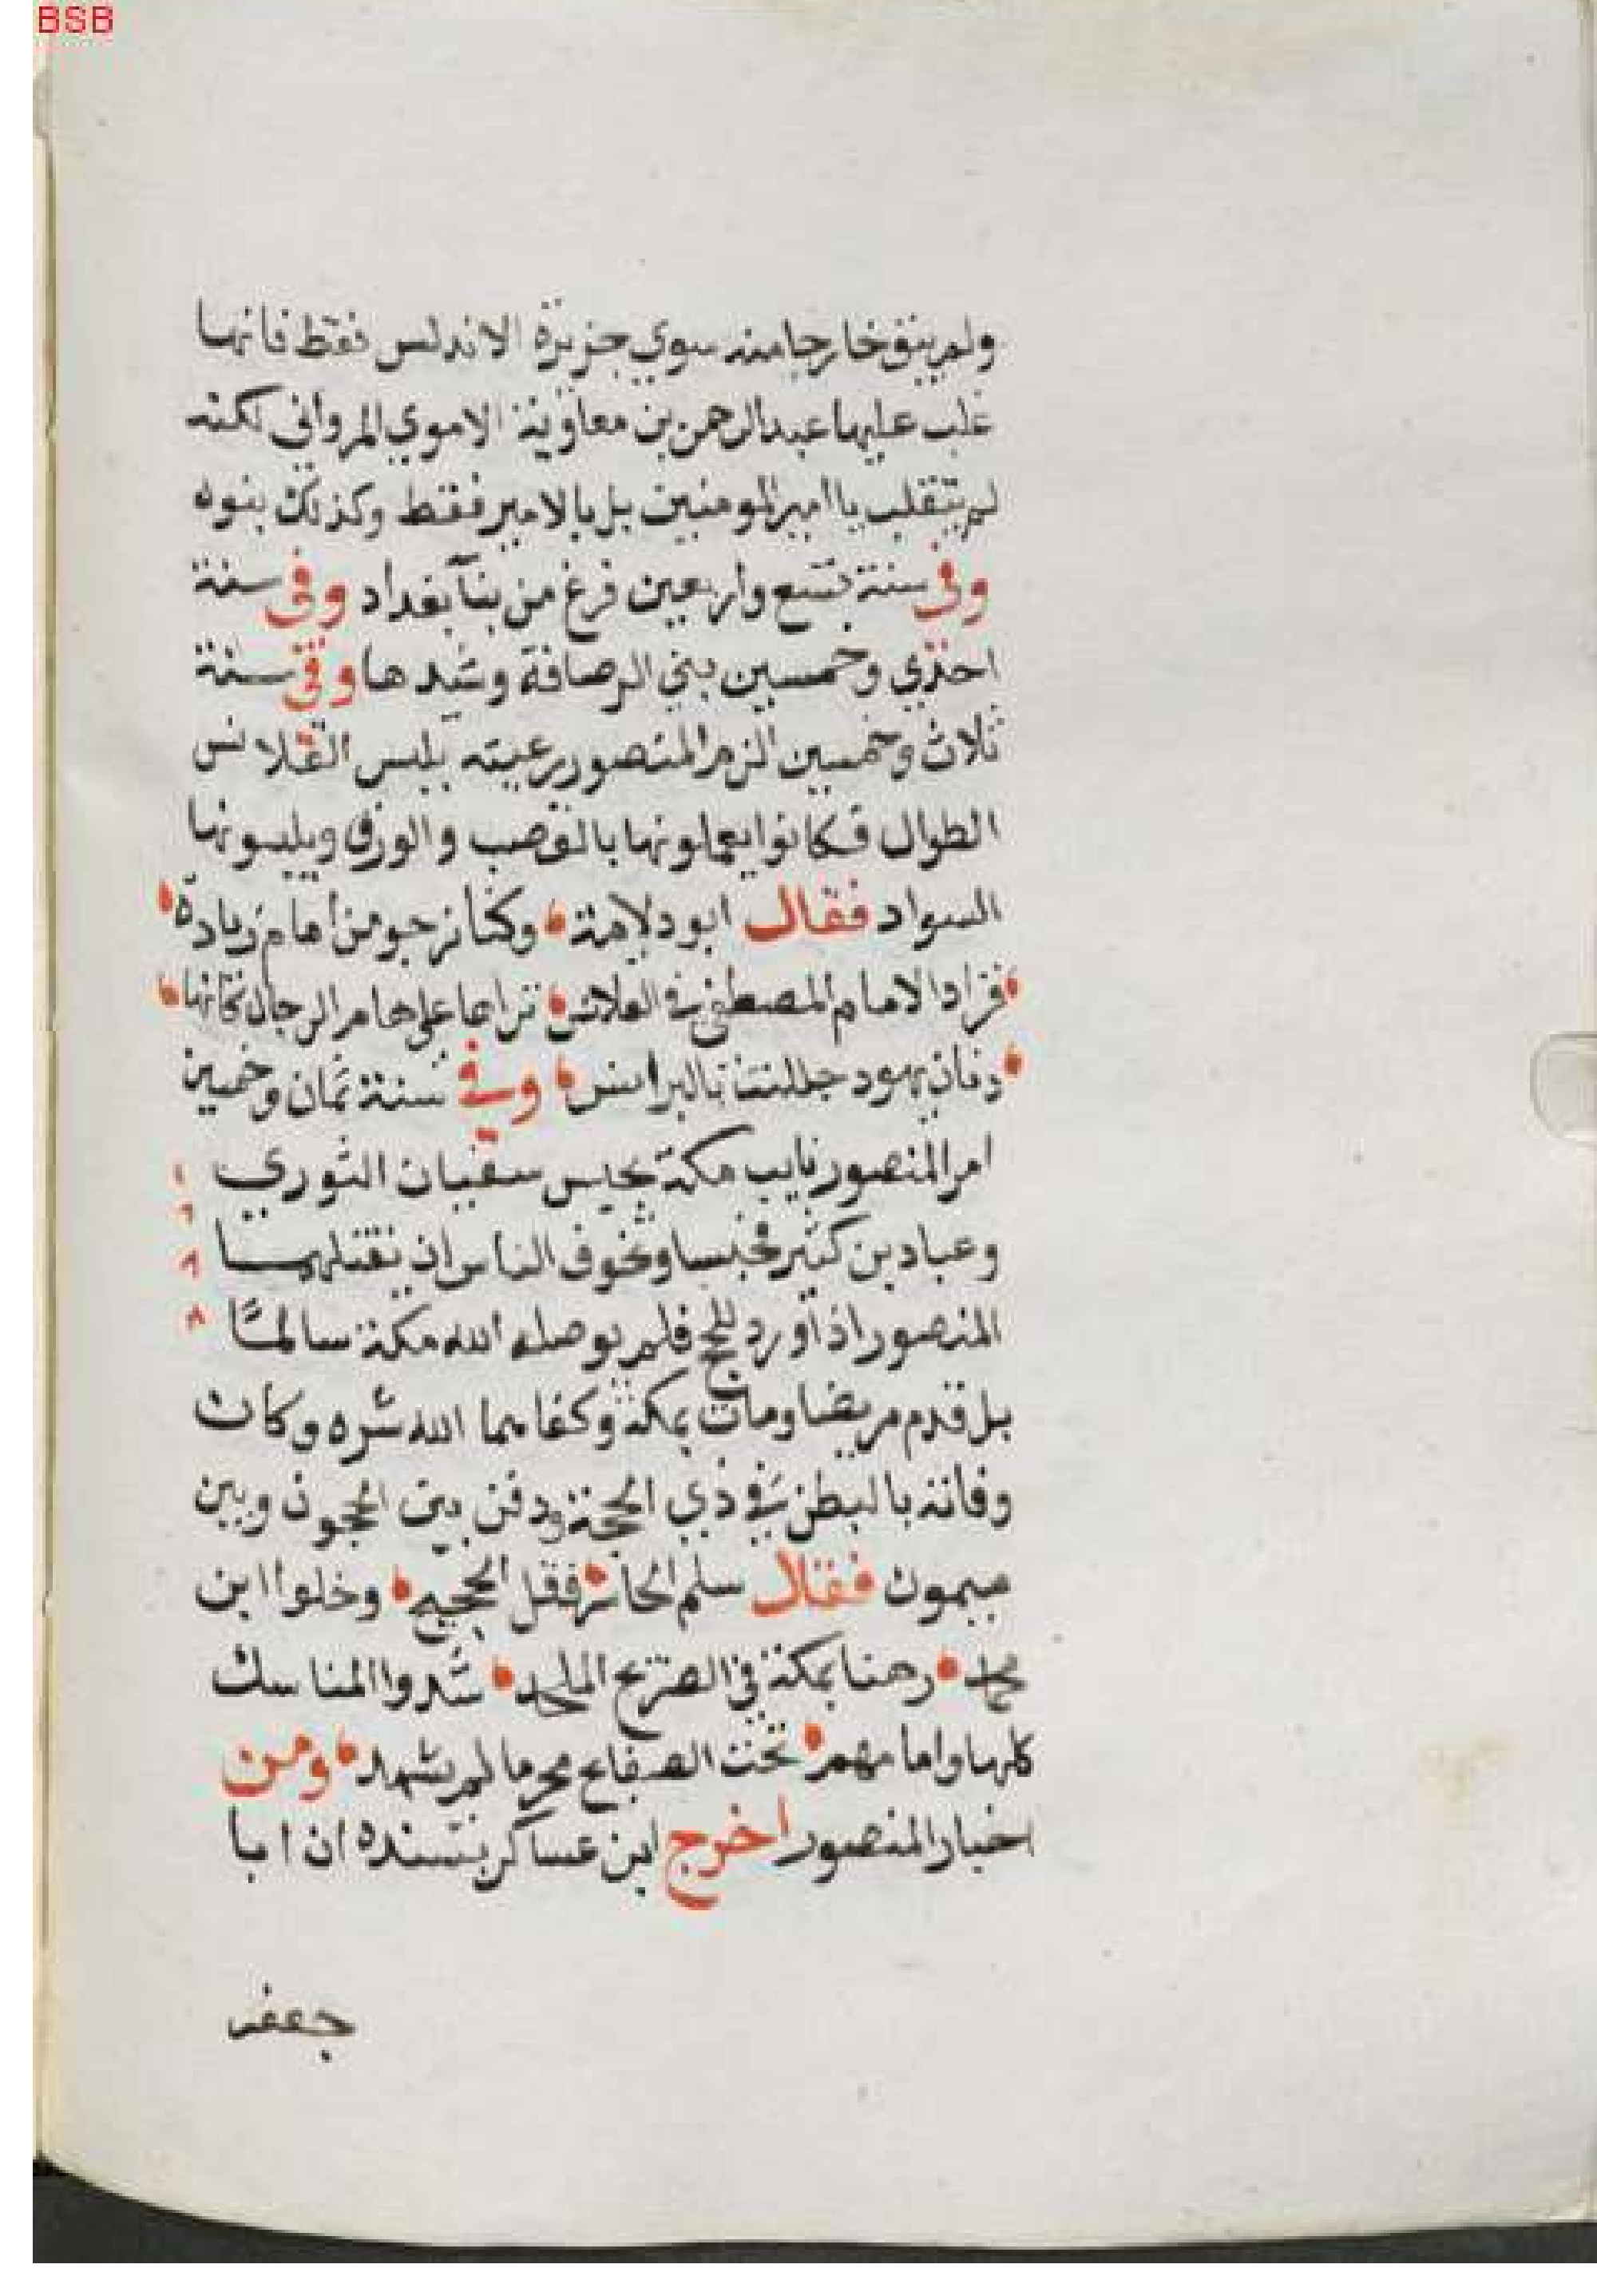 BSB
ولم يبق خارجا منه سوي جزيرة الاندلس فقط فانها
غلب عليها عبد الرحمن بن معاوية الاموي المرواني لكنه
لم يتقلب باامير المومنين بل بالامير فقط وكذلك بنوه
وفي سنة تسع واربعين فرغ من بنآ بغداد وفي سنة
احدي وخمسين بني الرصافة وشيدها وفي سنة
ثلاث وخمسين الزم المنصور رعيته بلبس القلانس
الطوال فكانوا يعملونها بالقصب والورق ويلبسونها
السواد فقال ابو دلامة وكنا نرجو من امام زيادة
فزاد الامام المصطفي في القلانس تراها علي هام الرجال كانها
دنان يهود جللت بالبرانس وفي سنة ثمان وخمسين
امر المنصور نايب مكة بحبس سفيان الثوري
وعباد بن كثير فحبسا وتخوف الناس ان يقتلهما
المنصور اذا ورد للحج فلم يوصله الله مكة سالمًا
بل قدم مريضا ومات بمكة وكفاهما الله شره وكان
وفاته بالبطن في ذي الحجة ودفن بين الحجون وبين
ميمون فقال سلم الخاسر قفل الحجيج وخلوا ابن
محمد رهنا بمكة في الضريح الملحد شدوا المناسك
كلها وامامهم تحت الصفايح محرما لم يشهد ومن
اخبار المنصور اخرج ابن عساكر بسنده ان ابا
جعفر